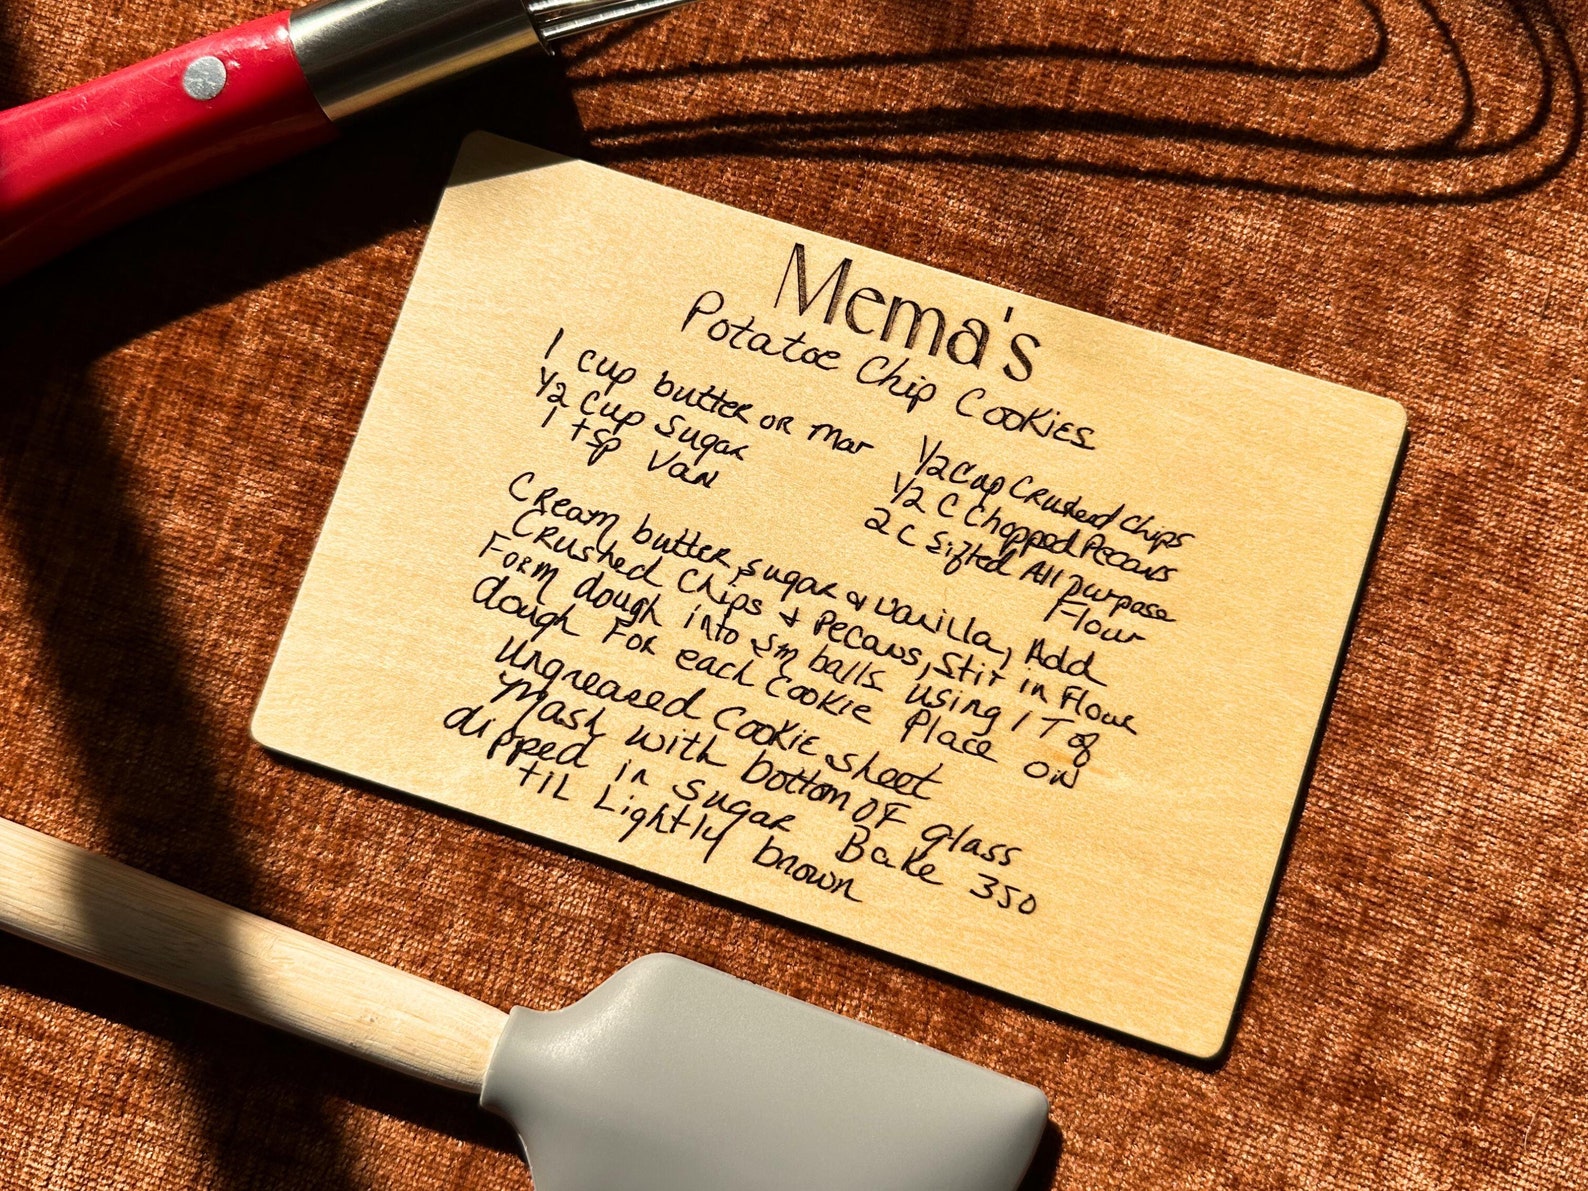 Mema's
Potatoe Chip Cookies
1 cup butter or mar
1/2 cup sugar
1 tsp van
1/2 Cup Crushed Chips
1/2 C Chopped Pecans
2 C Sifted All purpose
Flour
Cream butter, sugar & vanilla, Add
Crushed Chips & Pecans, Stir in Flour
Form dough into sm balls using 1 T of
dough For each Cookie Place on
Ungreased Cookie sheet
Mash with bottom of glass
dipped in sugar Bake 350
til Lightly brown